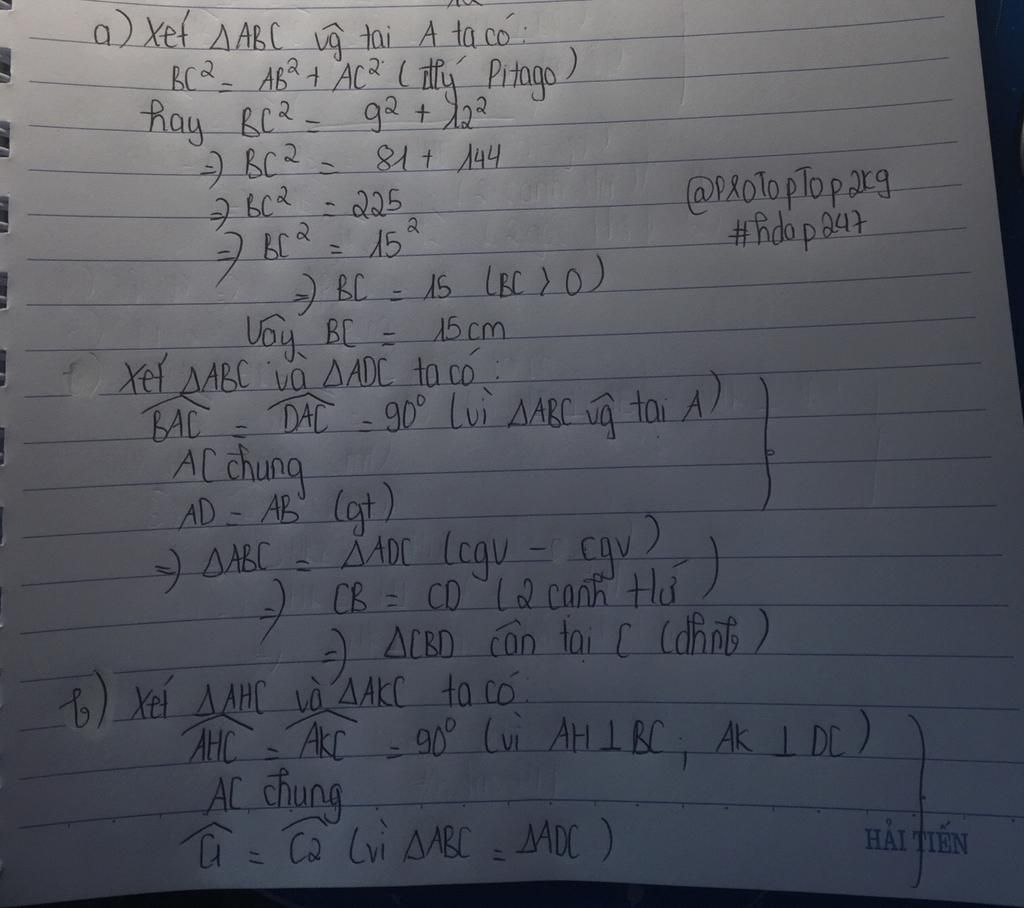 a) Xét ΔABC vg̑ tại A ta có:
BC² = AB² + AC² (đlý Pitago)
hay BC² = 9² + 12²
=> BC² = 81 + 144
=> BC² = 225
@PROTopTop2kg
#hdap247
=> BC² = 15²
=> BC = 15 (BC > 0)
Vậy BC = 15cm
Xét ΔABC và ΔADC ta có:
BAC = DAC = 90° (vì ΔABC vg̑ tại A)
AC chung
AD = AB (gt)
=> ΔABC = ΔADC (cgv - cgv)
=> CB = CD (2 cạnh tứ)
=> ΔCBD cân tại C (dhnb)
b) Xét ΔAHC và ΔAKC ta có:
AHC = AKC = 90° (vì AH ⊥ BC; AK ⊥ DC)
AC chung
C1 = C2 (vì ΔABC = ΔADC)
HẢI TIẾN